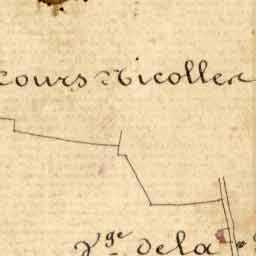 cours Nicolle
Vge de la